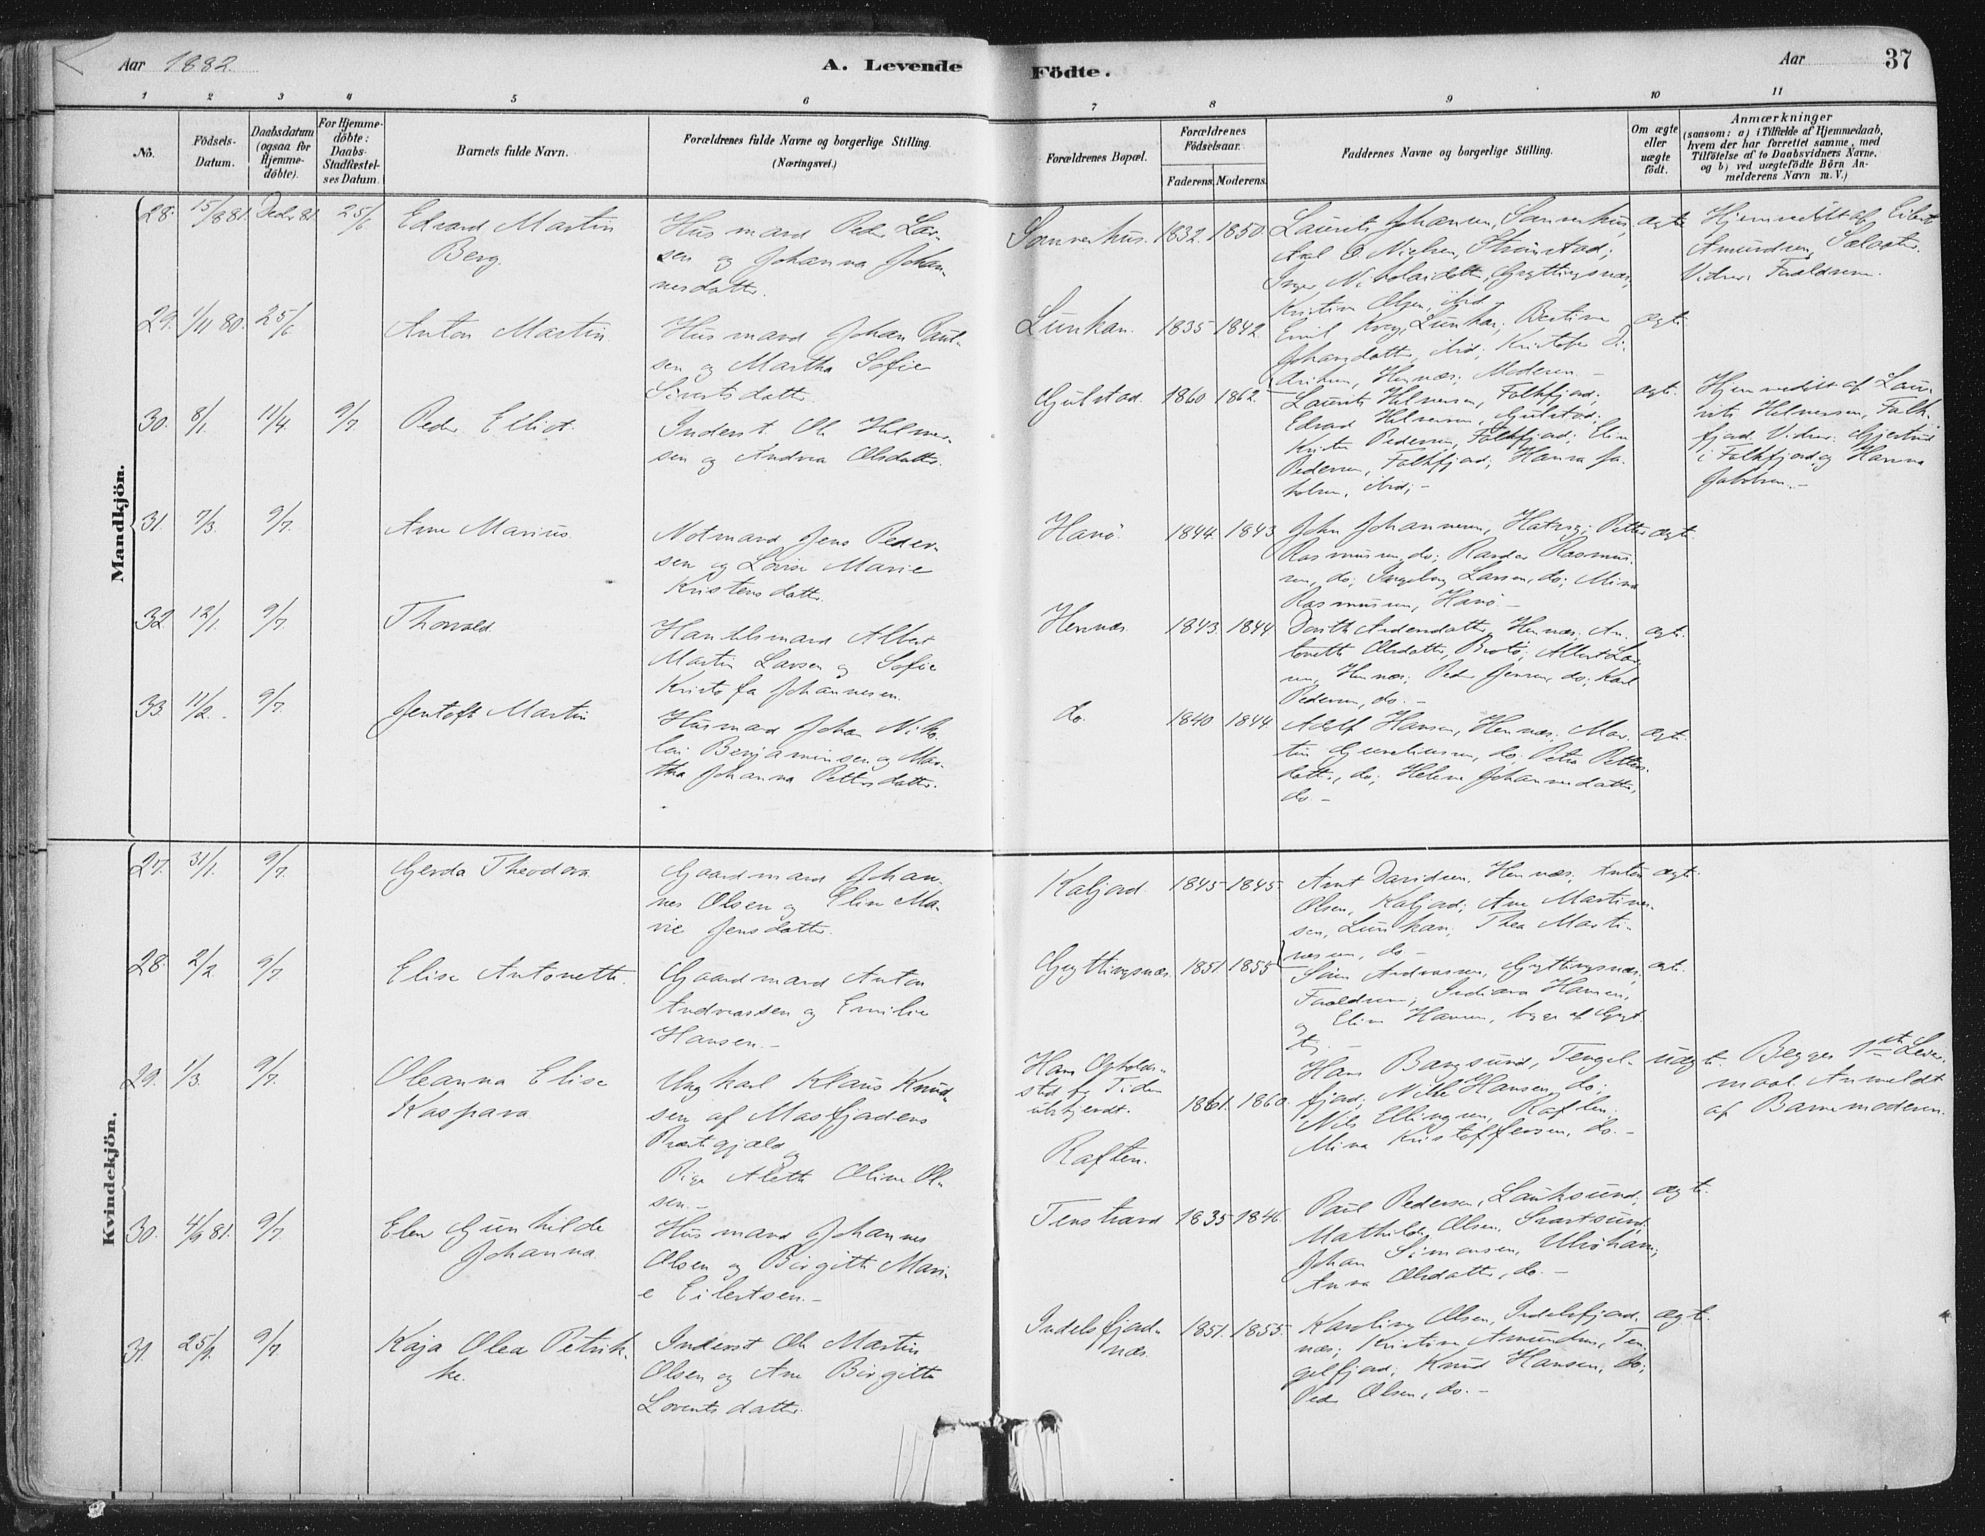 Aar 1882.
A. Levende
Födte.
Aar
37
1 2 3 4 5 6 7 8 9 10 11
No.
Födsels-
Datum.
Daabsdatum
(ogsaa for
Hjemme-
döbte).
For Hjemme-
döbte:
Daabs-
Stadfæstel-
ses Datum.
Barnets fulde Navn.
Forældrenes fulde Navne og borgerlige Stilling
(Næringsvei.)
Forældrenes Bopæl.
Forældrenes
Födselsaar.
Faderens. Moderens.
Faddernes Navne og borgerlige Stilling.
Om ægte
eller
uægte
födt.
Anmærkninger
(saasom: a) i Tilfælde af Hjemmedaab,
hvem der har forrettet samme, med
Tilföielse af to Daabsvidners Navne.
og b) ved uægtefödte Börn An-
melderens Navn m. V.)
Mandkjön.
28. 15/8 81. Decbr 81 25/6
Edvard Martin
Berg.
Husmand Peder Lar-
sen og Johanna Johan-
nesdatter.
1832. 1850
Laurits Johansen,
Axel O Nielsen,
ægte
Hjemmedöbt af Eilert
Amundsen,
Vidner: Forældrene.
29. 1/11 80. 25/6
Anton Martin
Husmand Johan Paul-
sen og Martha Sofie
Sivertsdatter.
Lunkan. 1835 1842
Kristine Olsen, ibid
Emil Krog, Lunkan; Bertine
Johansdatter, ibid; Kristofer Di-
driksen, Hennæs; Moderen. -
ægte
30. 8/1. 11/4. 9/7.
Peder Elliot.
Inderst Ole Helmer-
sen og Andrea Olsdatter.
Gulstad. 1860 1862
Laurits Helmersen, Falkfjord;
Edvard Helmersen, Gulstad;
Pedersen, Falkfjord; Elen
Pedersen, Falkfjord; Hanna Ja-
kobsen, ibid; -
ægte.
Hjemmedöbt af Lau-
rits Helmersen, Falk-
fjord. Vidner:
i Falkfjord og Hanna
Jakobsen. -
31 7/3. 9/7.
Arne Marius.
Notmand Jens Peder-
sen og Lovise Marie
Kristensdatter.
Hanö. 1844. 1843
John Johannesen, Petter
Rasmussen, do; Rasmus-
sen, do; Ingeborg Larsen, do; Mina
Rasmussen, Hanö. -
ægte
32. 12/1 9/7.
Thorvald
Handelsmand Albert
Martin Larsen og Sofie
Kristofa Johannesen.
Hennæs 1843. 1844
Dorth Andersdatter, Hennæs; An-
tonette Olsdatter, Brotö; Albert Lar-
sen, Hennæs; Peder Jensen, do; Karl
Pedersen, do. -
ægte.
33. 11/2. 9/7.
Jentoft Martin
Husmand Johan Niko-
lai Benjaminsen og Mar-
tha Johanna Pettersdatter.
do. 1840 1844
Adolf Hansen, Hennæs; Mar-
tin do; Petra Petters-
datter, do; Helene Johannesdatter,
do -
ægte.
Kvindekjön.
27. 31/1. 9/7.
Gerda Theodora
Gaardmand Johan-
nes Olsen og Eline Ma-
rie Jensdatter.
Kaljord. 1845 1845.
Arnt Davidsen, Hennæs; Anton
Olsen, Kaljord; Arne Martines-
sen, Lunkan; Thea Marti-
nesen, do -
ægte
28. 2/2. 9/7
Elise Antonette.
Gaardmand Anton
Andreassen og Emilie
Hansen. -
Gryttingsnæs. 1851. 1855
Sören Andreassen, Gryttingsnæs;
Forældrene; Indiana Hansen,
og Eline Hansen, begge af Gryt-
ting. -
ægte.
29. 1/3. 9/7.
Oleanna Elise
Kaspara
Ungkarl Klaus Knud-
sen af Masfjordens
Præstegjæld og
Pige Alette Oline Ol-
sen. -
Hans Opholds-
sted for Tiden
ubekjendt.
Raften.
1861. 1860.
Hans Bangsund, Tengel-
fjord; Hansen, do;
Nils Ellingsen, Raften.
Mina Kristoffersen, do. -
uægte.
Begges 1ste Leier-
maal. Anmeldt
af Barnemoderen.
30. 4/9 81. 9/7
Elen Gunhilde
Johanna
Husmand Johannes
Olsen og Birgitte Mari-
e Eilertsen. -
Tenstrand 1835 1846.
Paul Pedersen, Lauksund.
Mathilde Olsen, Svartsund.
Johan Simonsen, Ulvöhavn;
Anna Olsdatter, do. -
ægte.
31. 25/1. 9/7
Kaja Olea Petrik-
ke.
Inderst Ole Martin
Olsen og Ane Birgitte
Lorentsdatter.
Indelsfjord-
næs. 1851. 1855.
Karoline Olsen, Indelsfjord-
næs; Kristine Amundsen, Ten-
gelfjord; Knud Hansen, do;
Peder Olsen, do. -
ægte.